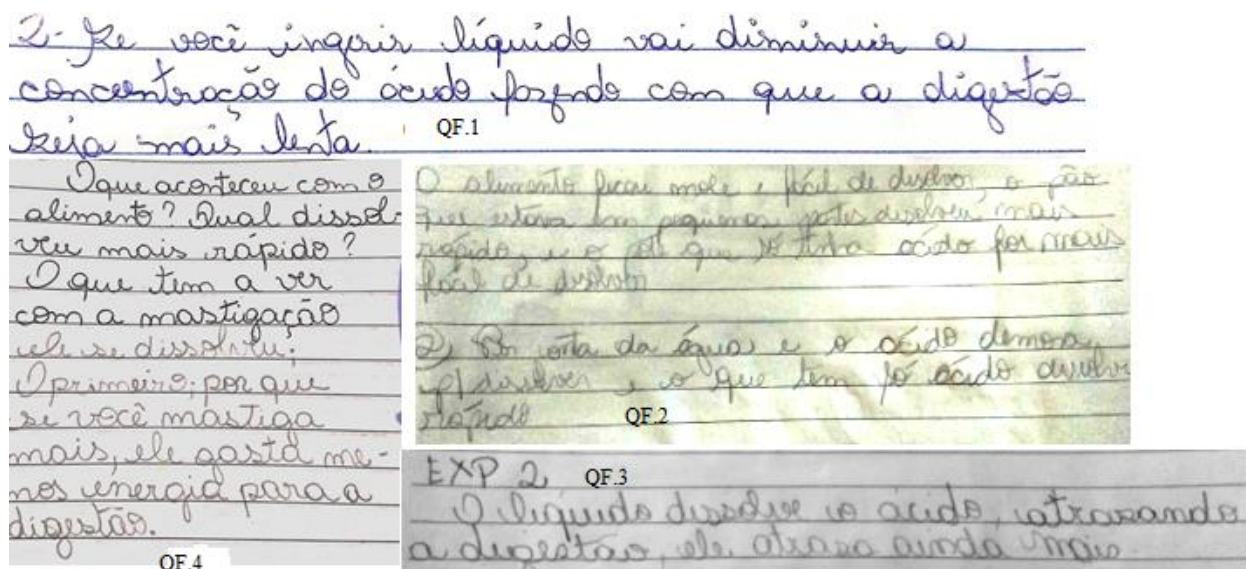 2- Se você ingerir líquido vai diminuir a
concentração do ácido fazendo com que a digestão
seja mais lenta.
QF.1
O que aconteceu com o
alimento? Qual dissol-
veu mais rápido?
O que tem a ver
com a mastigação
ele se dissolveu;
O primeiro; por que
se você mastiga
mais, ele gasta me-
nos energia para a
digestão.
QF.4
O alimento ficou mole e fácil de disolver, o pão
que estava em pequenas partes disolveu mais
rápido, e o pote que só tinha ácido foi mais
fácil de disolver
2) Por conta da água e o ácido demora
p/ disolver e o que tem só ácido disolve
rápido
QF.2
EXP 2 QF.3
O liquido dissolve o ácido, atrasando
a digestão, ele atrasa ainda mais.